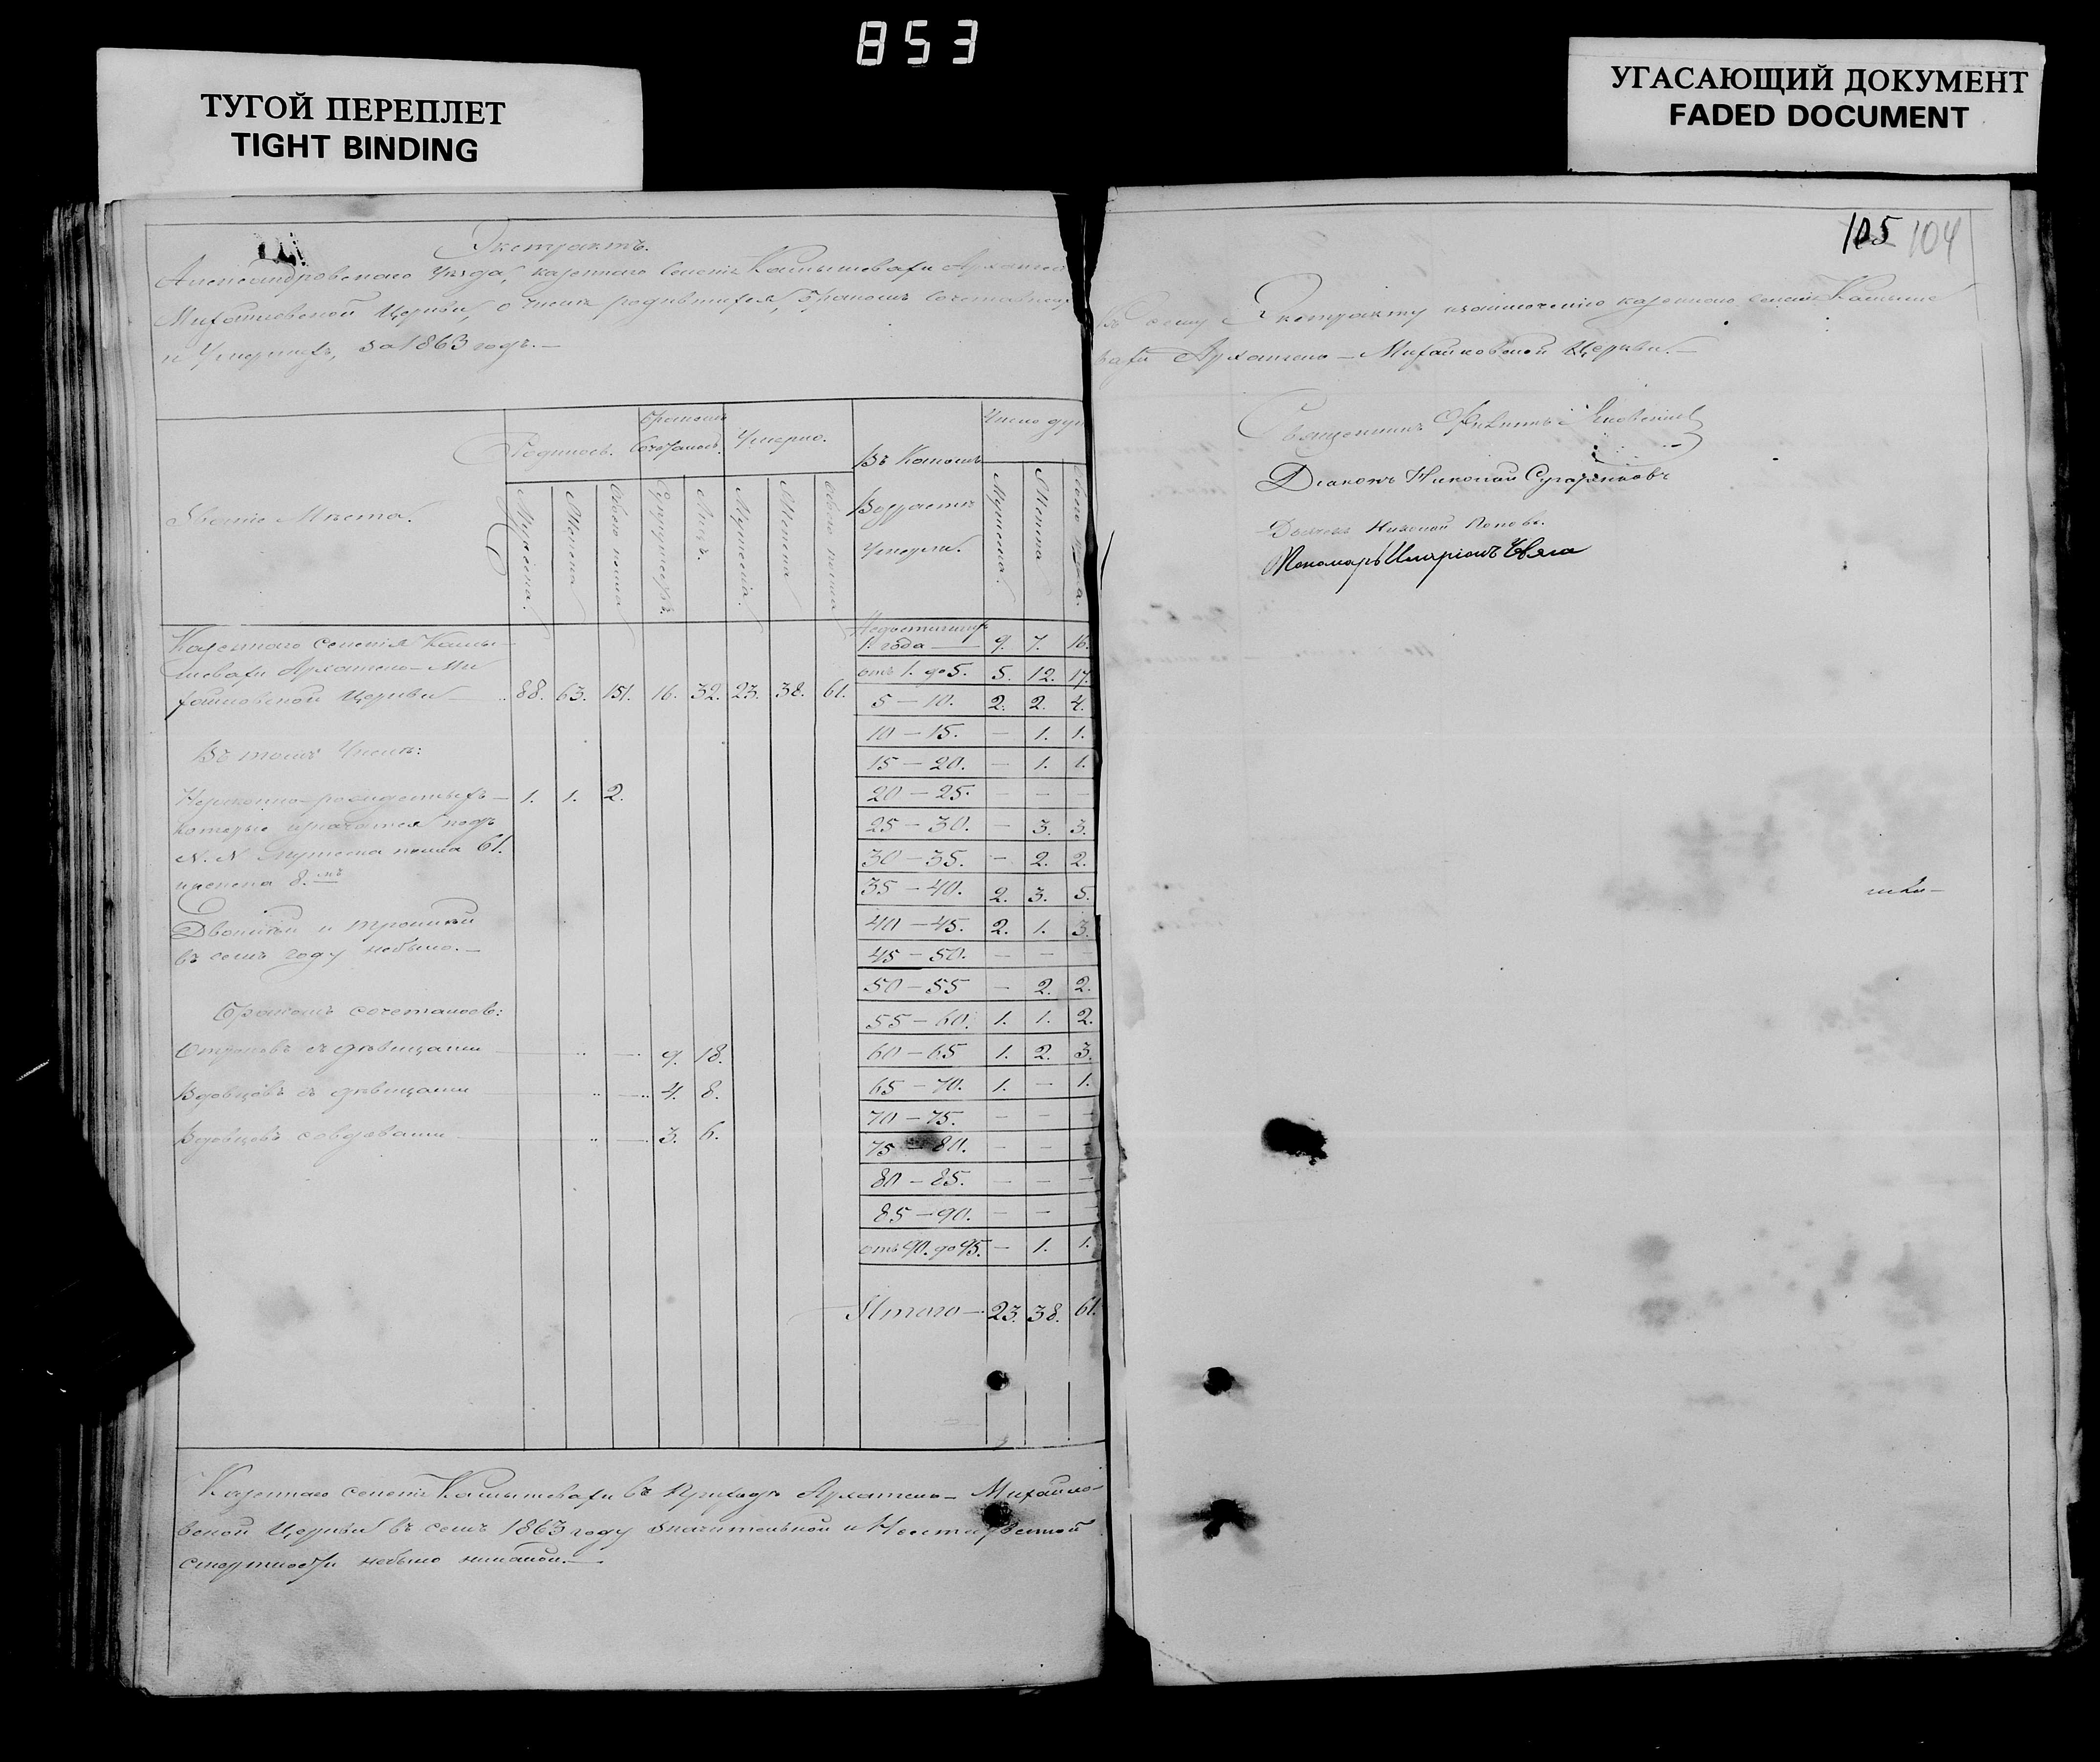 853
ТУГОЙ ПЕРЕПЛЕТ
TIGHT BINDING
УГАСАЮЩИЙ ДОКУМЕНТ
FADED DOCUMENT
Экстрактъ.
Александровскаго Уѣзда, казеннаго Селенія Камышевахи Архангел
Михайловской Церкви, о числѣ родившихся, бракомъ сочетавших
и Умершихъ, за 1863 годъ.—
Званіе Мѣста.
Родилось.
Бракомъ Сочеталось.
Умерло.
Въ Какомъ Возрастѣ Умерли.
Число душ
Мужеска.
Женска
Обоего пола
Супружествъ.
Лицъ.
Мужеска.
Женска
Обоего пола
Мужеска.
Женска
Обоего пола.
Казеннаго Селенія Камы-
шевахи Архангело-Ми
хайловской Церкви 88. 63. 151. 16. 32. 23. 38. 61.
Въ томъ Числѣ:
Незаконно-рожденныхъ — 1. 1. 2.
которые подъ
N. N мужеска пола 61.
женска 8.мъ
Двойней и тройней
въ семъ году небыло.—
Бракомъ сочеталось:
Отроковъ съ дѣвицами 9. 18.
Вдовцовъ съ дѣвицами 4. 8.
Вдовцовъ совдовами 3. 6.
Недостигшихъ
1. года — 9. 7. 16.
отъ 1. до 5. 5. 12. 17.
5 — 10. 2. 2. 4.
10 — 15. — 1. 1.
15 — 20. — 1. 1.
20 — 25. — — —
25 — 30. — 3. 3.
30 — 35. — 2. 2.
35 — 40. 2. 3. 5.
40 — 45. 2. 1. 3.
45 — 50. — — —
50 — 55 — 2. 2.
55 — 60. 1. 1. 2.
60 — 65 1. 2. 3.
65 — 70. 1. — 1.
70 — 75. — — —
75 — 80. — — —
80 — 85. — — —
85 — 90. — — —
отъ 90. до 95. — 1. 1.
Итого — 23. 38. 61.
Казеннаго Селенія Камышевахи въ Приходѣ Архангело- Михайло-
вской Церкви въ семъ 1863 году значительной и
смертности небыло никакой.—
105 104
Къ сему Экстракту казеннаго Селенія Камыше
вахи Архангело — Михайловской Церкви.—
Священникъ
Діаконъ Николай
Дьячекъ Николай Поповъ.
Пономарь Иларіонъ